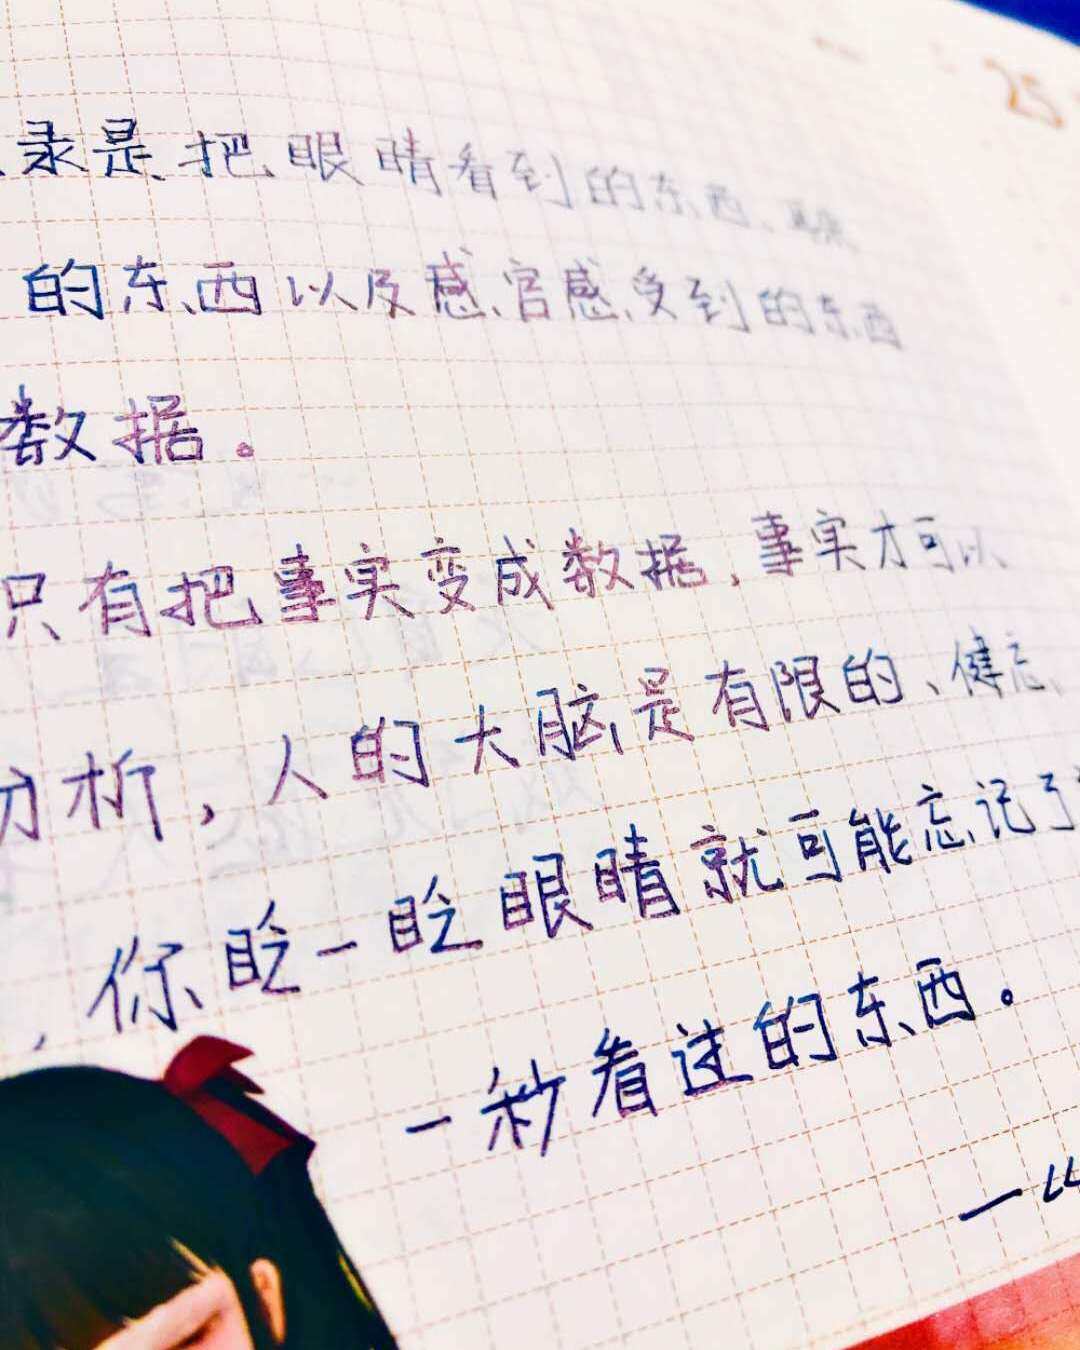 25
录是把眼睛看到的东西、
的东西以及感官感受到的东西
数据。
只有把事实变成数据,事实才可以
分析,人的大脑是有限的、健忘、
,你眨一眨眼睛就可能忘记了
一秒看过的东西。